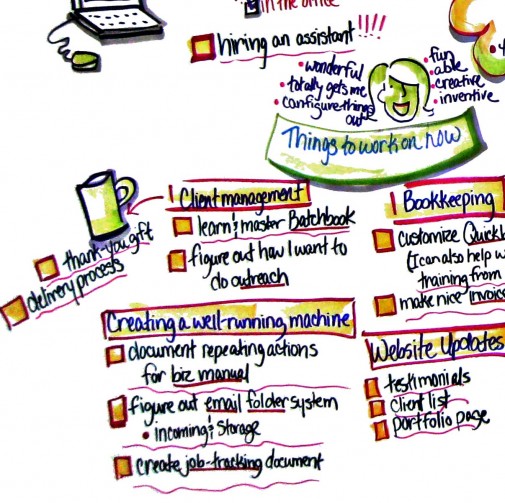 in the office
hiring an assistant!!!!
• wonderful
• totally gets me
• configure things
out
• fun
• able
• creative
• inventive
Things to work on now
thank-you gift
delivery process
! Client management
learn & master Batchbook
figure out how I want to
do outreach
! Bookkeeping
customize Quick
(I can also help w
training from
make nice Invoic
Creating a well-running machine
document repeating actions
for biz manual
figure out email folder system
• incoming & storage
create job-tracking document
Website Updates
testimonials
client list
portfolio page